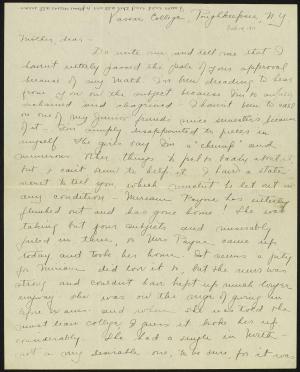 Vassar College, Poughkeepsie, N.Y.
Mother, dear -
Do write me and tell me that I
haven't utterly passed the pale of your approval
because of my Math. I've been dreading to hear
from you on the subject because I'm so
ashamed and chagrined. I haven't been to call
on one of my Junior friends since semesters because
of it. I'm simply disappointed to pieces in
myself. The girls say I'm a "chump" and
numerous other things to feel so badly about it,
but I can't seem to help it. I have a
secret to tell you, which mustn't be let out in
any condition - Miriam Payne has utterly
flunked out and has gone home! She was
taking but four subjects and miserably
failed in three, so Mrs Payne came up
today and took her home. It seems a pity
for Miriam did love it so, but she never was
strong and couldn't have kept up much longer
anyway. She was on the verge of giving in
and when she was told she
must leave college I guess it broke her up
considerably. She had a single in North -
not a very desirable one, to be sure, for it was